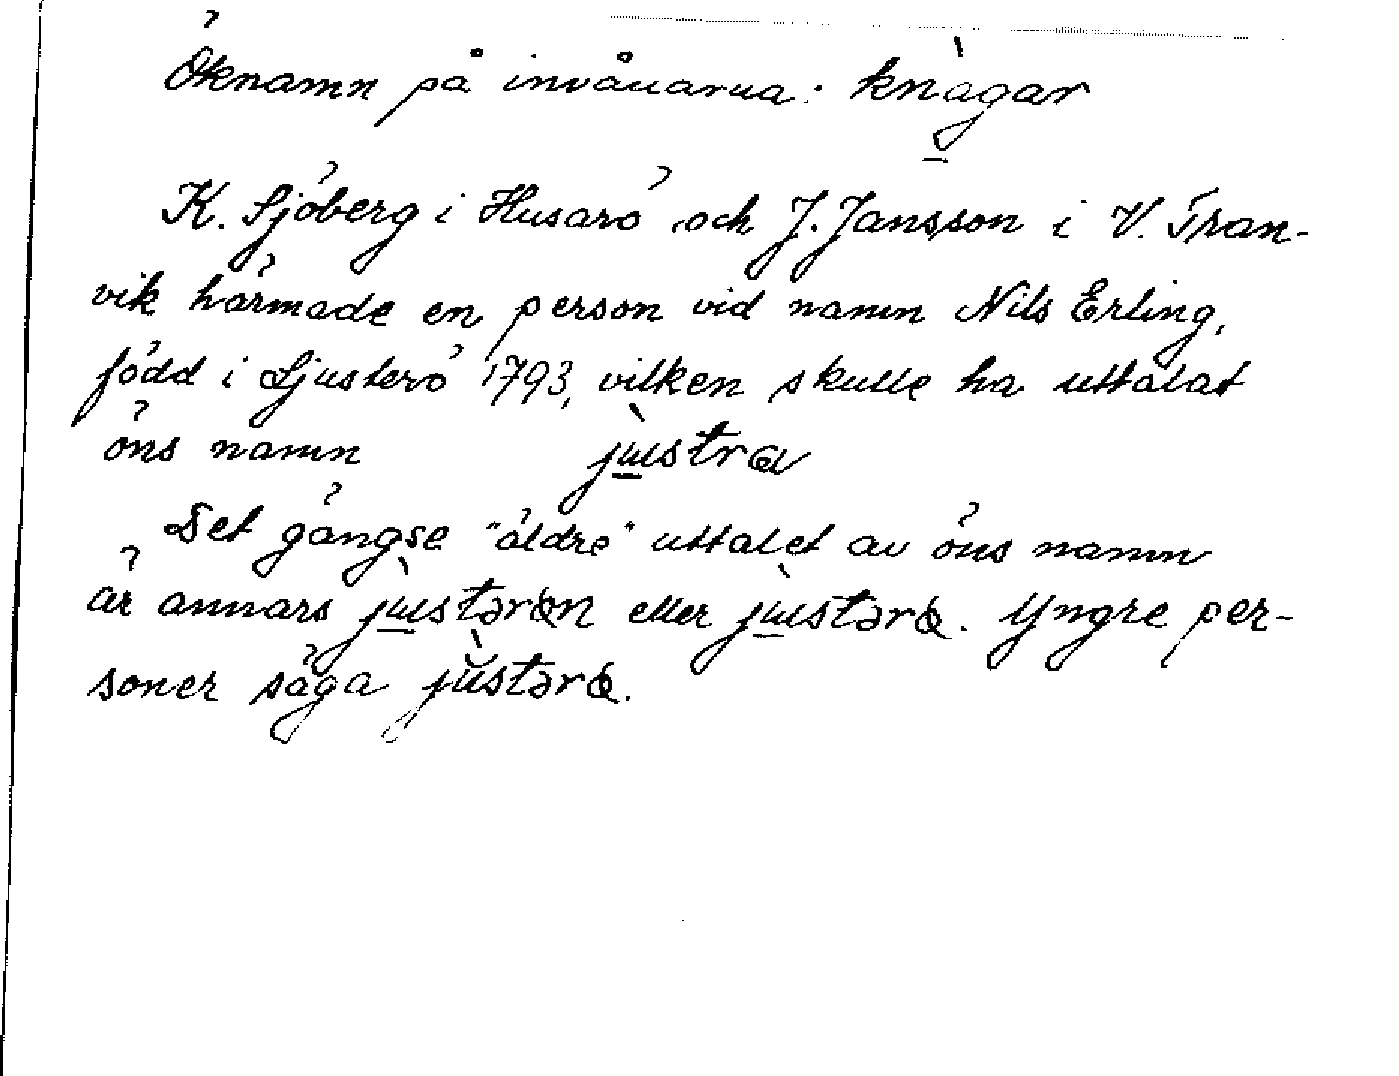 Öknamn på invånarna: knàgar
K. Sjöberg i Husarö och J. Jansson i V. Tran-
vik härmade en person vid namn Nils Erling,
född i Ljusterö 1793, vilken skulle ha uttalat
öns namn jùstra
Det gängse "äldre" uttalet av öns namn
är annars jùstəran eller jùstəra. Yngre per-
soner säga jùstəra.